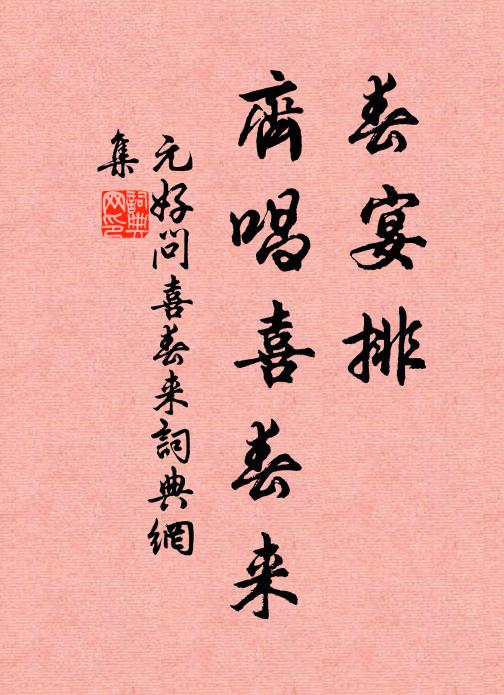 春宴排
齊唱喜春来
元好问喜春来詞典網
集
詞典
网印